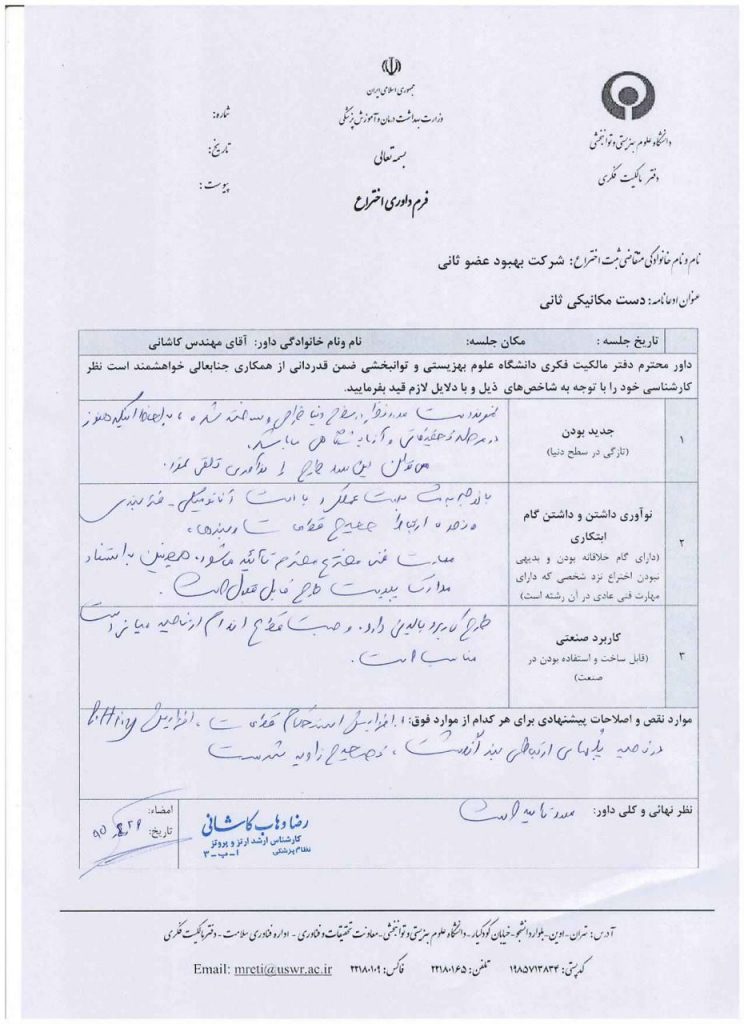 جمهوری اسلامی ایران
وزارت بهداشت درمان و آموزش پزشکی
بسمه تعالی
فرم داوری اختراع
دانشگاه علوم بهزیستی و توانبخشی
دفتر مالکیت فکری
شماره:
تاریخ:
پیوست:
نام و نام خانوادگی متقاضی ثبت اختراع: شرکت بهبود عضو ثانی
عنوان ادعانامه: دست مکانیکی ثانی
تاریخ جلسه : مکان جلسه: نام ونام خانوادگی داور: آقای مهندس کاشانی
داور محترم دفتر مالکیت فکری دانشگاه علوم بهزیستی و توانبخشی ضمن قدردانی از همکاری جنابعالی خواهشمند است نظر
کارشناسی خود را با توجه به شاخص‌های ذیل و با دلایل لازم قید بفرمایید.
۱
جدید بودن
(تازگی در سطح دنیا)
در سطح دنیا طراحی و ساخته شده
در مرحله تحقیقاتی و آزمایشگاهی می باشد.
می توان این طرح را نوآوری تلقی نمود.
۲
نوآوری داشتن و داشتن گام
ابتکاری
(دارای گام خلاقانه بودن و بدیهی
نبودن اختراع نزد شخصی که دارای
مهارت فنی عادی در آن رشته است)
با توجه به
نحوه ارتباط صحیح قطعات
مهارت فنی مخترع محترم تائید میشود. همچنین
طرح قابل قبول است.
۳
کاربرد صنعتی
(قابل ساخت و استفاده بودن در
صنعت)
طرح کاربرد بالینی دارد. و جهت قطع اندام از ناحیه
مناسب است.
موارد نقص و اصلاحات پیشنهادی برای هر کدام از موارد فوق: افزایش استحکام قطعات، افزایش fitting
در ناحیه ارتباطی بند انگشت، تصحیح زاویه شست
نظر نهائی و کلی داور: مورد تایید است
رضا وهاب کاشانی
کارشناس ارشد ارتز و پروتز
نظام پزشکی ا-ب-۳
امضاء:
تاریخ:
آدرس: تهران-اوین-بلوار دانشجو-خیابان کودکیار-دانشگاه علوم بهزیستی و توانبخشی-معاونت تحقیقات و فناوری - اداره فناوری سلامت-دفتر مالکیت فکری
کدپستی: ۱۹۸۵۷۱۳۸۳۴ تلفن: ۲۲۱۸۰۱۶۵ فاکس: ۲۲۱۸۰۱۰۹ Email: mreti@uswr.ac.ir